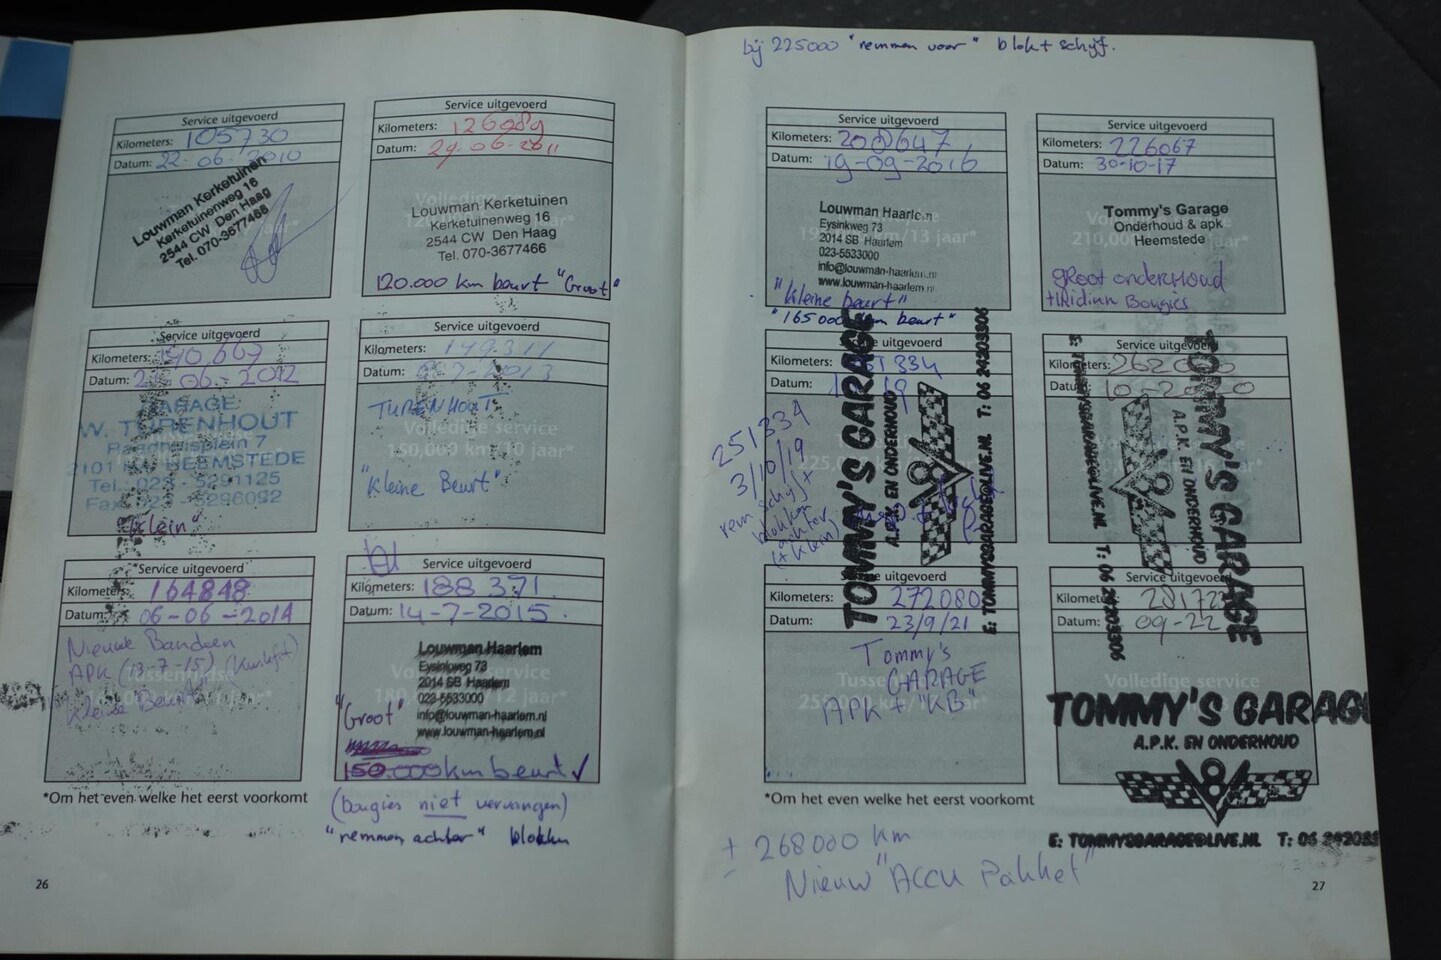 bij 225000 "remmen voor" blok + schijf.
Service uitgevoerd
Kilometers: 105730
Datum: 22-06-2010
Louwman Kerketuinen
Kerketuinenweg 16
2544 CW Den Haag
Tel. 070-3677466
Service uitgevoerd
Kilometers: 126989
Datum: 29-06-2011
Louwman Kerketuinen
Kerketuinenweg 16
2544 CW Den Haag
Tel. 070-3677466
120.000 km beurt "Groot"
Service uitgevoerd
Kilometers: 140.667
Datum: 06-2012
GARAGE
W. TURENHOUT
Raadhuisplein 7
2101 HEEMSTEDE
Tel.: 023-5291125
Fax: 023-5296092
"Klein"
Service uitgevoerd
Kilometers: 149311
Datum: 7-2013
TURENHOUT
Volledige service
150,000 km/10 jaar*
"Kleine Beurt"
Service uitgevoerd
Kilometers: 164848
Datum: 06-06-2014
Nieuwe Banden
APK (13-7-15) (Kwikfit)
Kleine Beurt
Service uitgevoerd
Kilometers: 188 371.
Datum: 14-7-2015.
Louwman Haarlem
Eysinkweg 73
2014 SB Haarlem
023-5533000
"Groot"
info@louwman-haarlem.nl
www.louwman-haarlem.nl
150.000 km beurt ✓
*Om het even welke het eerst voorkomt
(bougies niet vervangen)
"remmen achter" blokken
26
Service uitgevoerd
Kilometers: 208647
Datum: 19-09-2016
Louwman Haarlem
Eysinkweg 73
2014 SB Haarlem
023-5533000
info@louwman-haarlem.nl
www.louwman-haarlem.nl
"Kleine beurt"
"165000 km beurt"
Service uitgevoerd
Kilometers: 226067
Datum: 30-10-17
Tommy's Garage
Onderhoud & apk
Heemstede
groot onderhoud
+ Iridium Bougies
Service uitgevoerd
Kilometers: 251334
Datum:
251334
3/10/19
rem schijf +
blokken
achter
(+ klein)
TOMMY'S GARAGE
A.P.K. EN ONDERHOUD
V8
E: TOMMYSGARAGE@LIVE.NL T: 06 24203306
Service uitgevoerd
Kilometers:
Datum:
TOMMY'S GARAGE
A.P.K. EN ONDERHOUD
V8
E: TOMMYSGARAGE@LIVE.NL T: 06 24203306
Service uitgevoerd
Kilometers: 272080
Datum: 23/9/21
Tommy's
GARAGE
APK + "KB"
Service uitgevoerd
Kilometers:
Datum: 09-22
Volledige service
TOMMY'S GARAGE
A.P.K. EN ONDERHOUD
V8
E: TOMMYSGARAGE@LIVE.NL T: 06
*Om het even welke het eerst voorkomt
± 268000 km
Nieuw "ACCU Pakket"
27